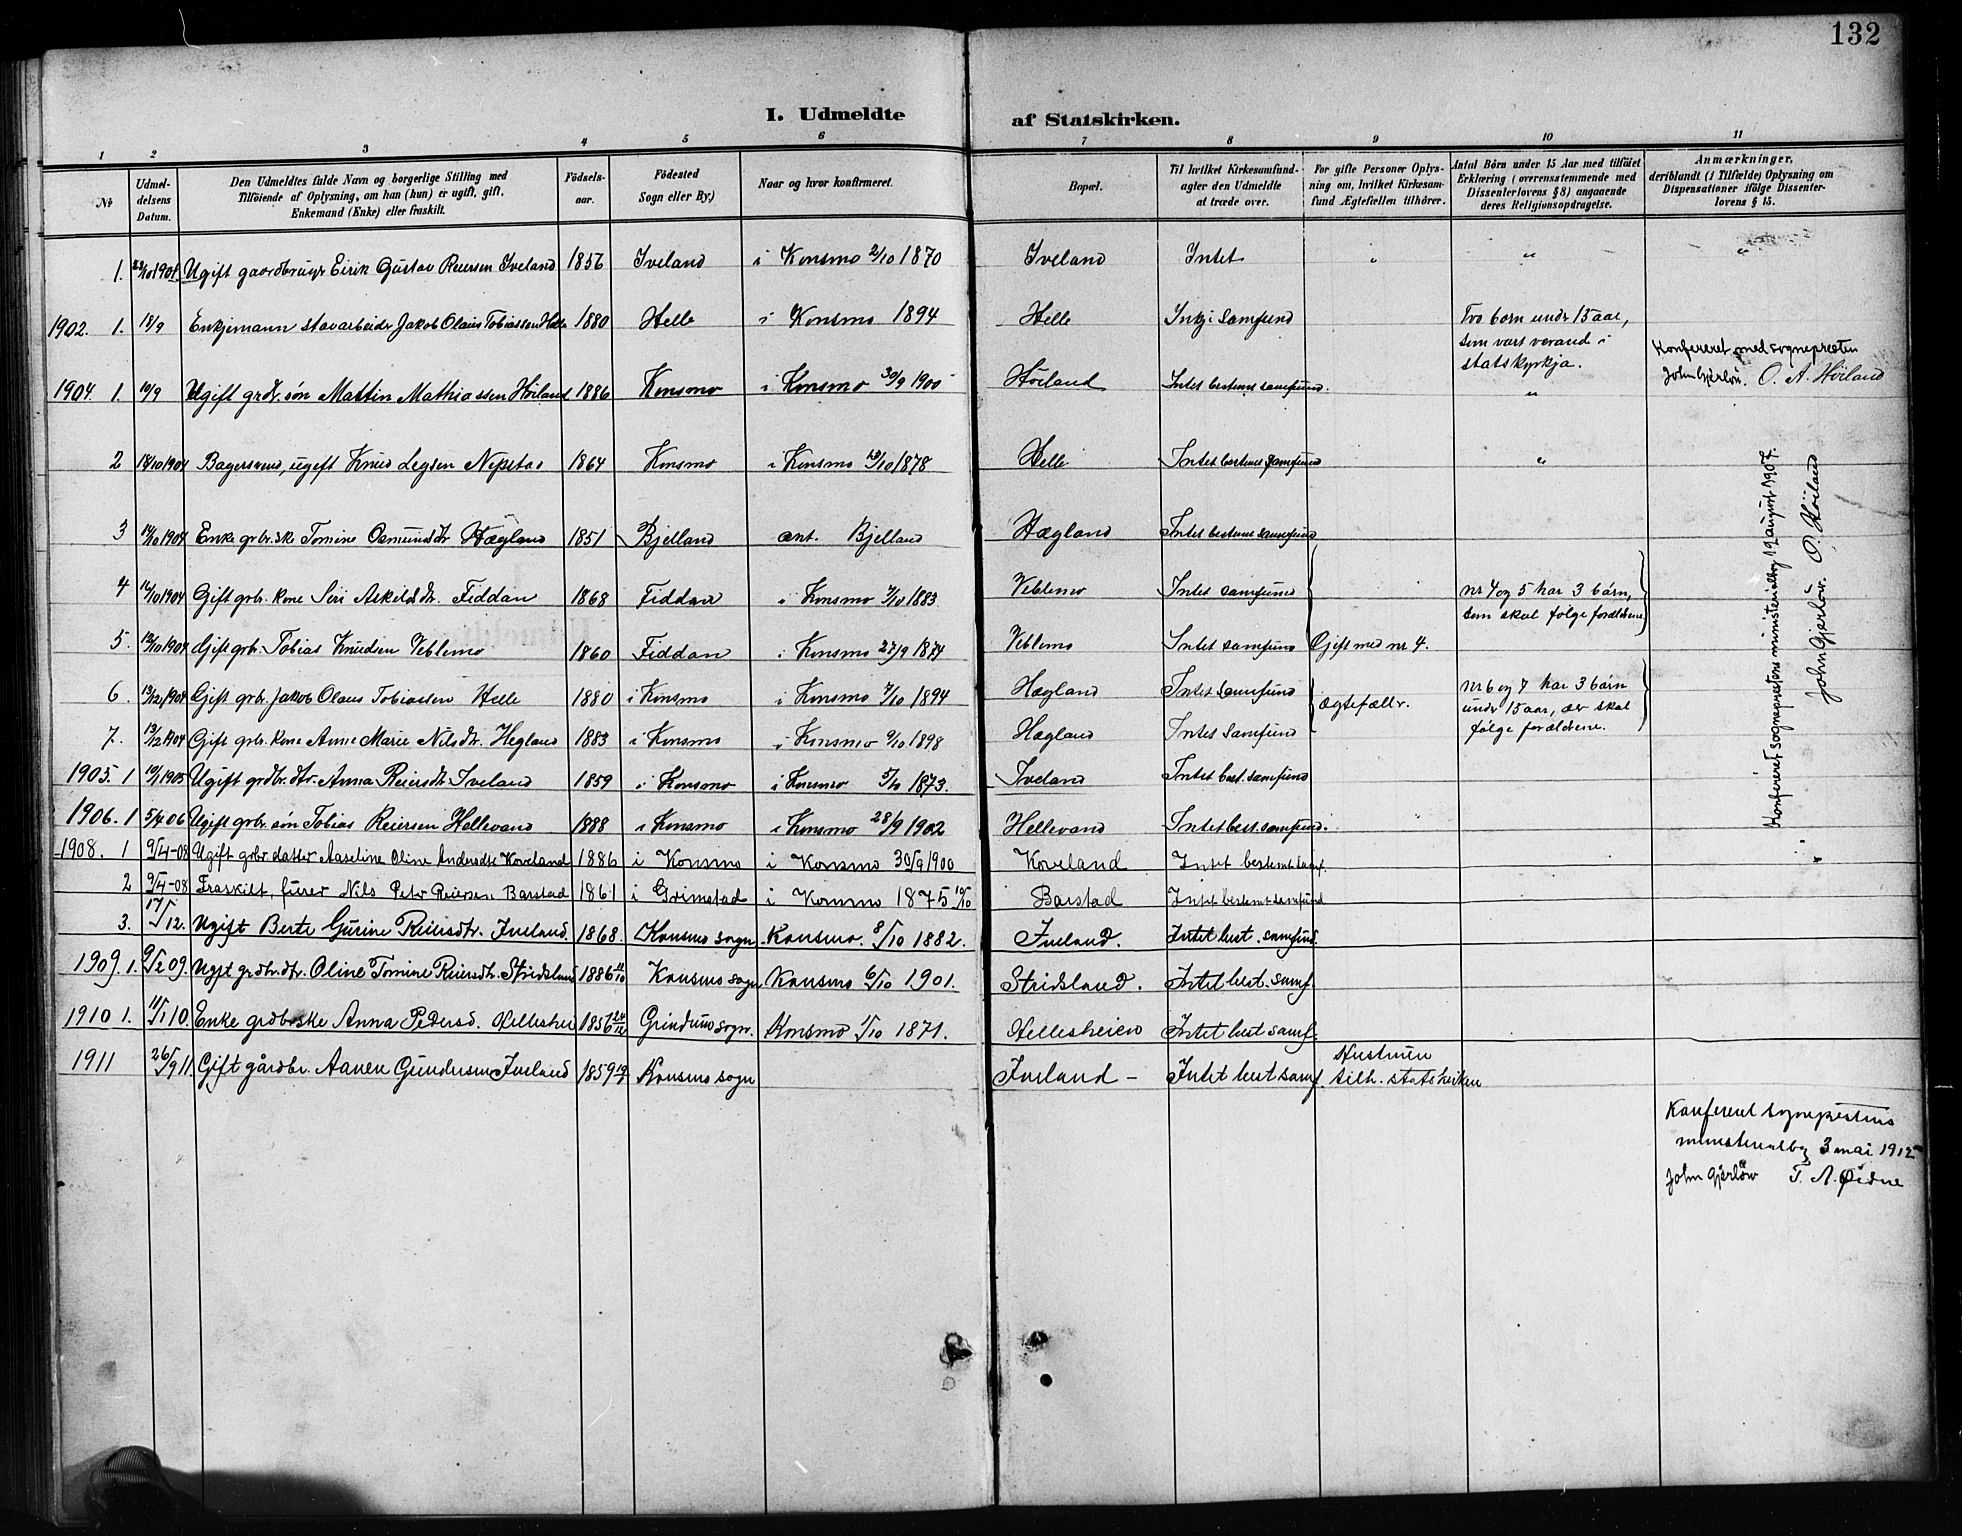 132
I. Udmeldte af Statskirken.
1 2 3 4 5 6 7 8 9 10 11
No
Udmeldelsens Datum.
Den Udmeldtes fulde Navn og borgerlige Stilling med
Tilføiende af Oplysning, om han (hun) er ugift, gift.
Enkemand (Enke) eller fraskilt.
Fødselsaar.
Fødested
Sogn eller By.)
Naar og hvor konfirmeret.
Bopæl.
Til hvilket Kirkesamfund-
agter den Udmeldte
at træde over.
For gifte Personer Oplys-
ning om, hvilket Kirkesam-
fund Ægtefællen tilhører.
Antal Børn under 15 Aar med tilføiet
Erklæring (overensstemmende med
Dissenterlovens § 8) angaaende
deres Religionsopdragelse.
Anmærkninger,
deriblandt (i Tilfælde) Oplysning om
Dispensationer ifølge Dissenter-
lovens § 15.
1. Ugift gaardbruger Eirik Gustav Reiersen Iveland 1856 Iveland i Konsmo 2/10 1870 Iveland Intet " " "
1902. 1. 18/9 Enkjemann stavarbeider Jakob Olaus Tobiassen Helle 1880 Helle i Konsmo 1894 Helle Inkji Samfund Tvo born under 15 aar,
som vart verand i
statskyrkja.
Konfereret med sognepresten
John Gjerløw. O. A. Høiland
1904. 1. 10/9 Ugift grdr. søn Martin Mathiassen Høiland 1886 Konsmo i Konsmo 30/9 1900 Høiland Intet bestemt samfund. "
2 14/10 1904 Bagersvend, ugift Knud 1864 Konsmo i Konsmo 13/10 1878 Helle Intet bestemt samfund "
3 14/10 1904 Enke grbr.ske Tomine Osmundsdtr Hægland 1851 Bjelland ant. Bjelland Hægland Intet bestemt samfund
4 14/10 1904 Gift grbr. kone Siri Askildsdtr. Fiddan 1868 Fiddan i Konsmo 7/10 1883 Veblemo Intet samfund nr 4 og 5 har 3 børn,
som skal følge forældrene
5. 12/10 1904 Gift grbr. Tobias Knudsen Veblemo 1860 Fiddan i Konsmo 27/9 1874 Veblemo Intet samfund Gift med nr 4.
6. 13/12 1904 Gift grbr. Jakob Olaus Tobiassen Helle 1880 i Konsmo i Konsmo 7/10 1894 Hægland Intet samfund ægtefæller. nr 6 og 7 har 3 børn
under 15 aar, der skal
følge forældrene.
7. 13/12 1904 Gift grbr. kone Anne Marie Nilsdtr. Hegland 1883 i Konsmo i Konsmo 9/10 1898 Hægland Intet Samfund
1905. 1 10/1 1905 Ugift grdbr. dtr. Anna Reiersdtr Iveland 1859 i Konsmo i Konsmo 5/10 1873. Iveland Intet best. samfund
1906. 1 5/4 06 Ugift grbr. søn Tobias Reiersen Hellevand 1888 i Konsmo i Konsmo 28/9 1902 Hellevand Intet best. samfund.
1908. 1 9/4-08 Ugift grbr. datter Aaseline Oline Andersdtr Koveland 1886 i Konsmo i Konsmo 30/9 1900 Koveland Intet bestemt samf. "
2 9/4-08 Fraskilt, furer Nils Peter Reiersen Barstad 1861 i Grimstad i Konsmo 1875 10/10 Barstad Intet bestemt samfund
3. 17/12. Ugift Berte Gurine Reiersdtr. Iveland. 1868. Konsmo sogn Konsmo. 8/10 1882. Iveland. Intet best. samfund.
1909. 1. 9/2 09. Ugift grdbr. dtr. Oline Tomine Reiersdtr. Stridsland 1886 11/10 Konsmo sogn Konsmo 6/10 1901. Stridsland. Intet best. samf.
1910 1. 11/1 10. Enke grdbrske Anna Pedersd. Helleshei 1856 24/12 Grindum sogn. Konsmo 1/10 1871. Helleskeien Intet best samf.
1911 26/9 11 Gift gårdbr. Aanen Gundersen Iveland 1859 Konsmo sogn Iveland – Intet best samf. Hustruen
tilh. statskirken
Konfereret sogneprestens ministerialbog 19 august 1907.
John Gjerløw. O. Høiland
Konfereret sogneprestens
ministerialbog 3 mai 1912
John Gjerløw T. A. Øidne